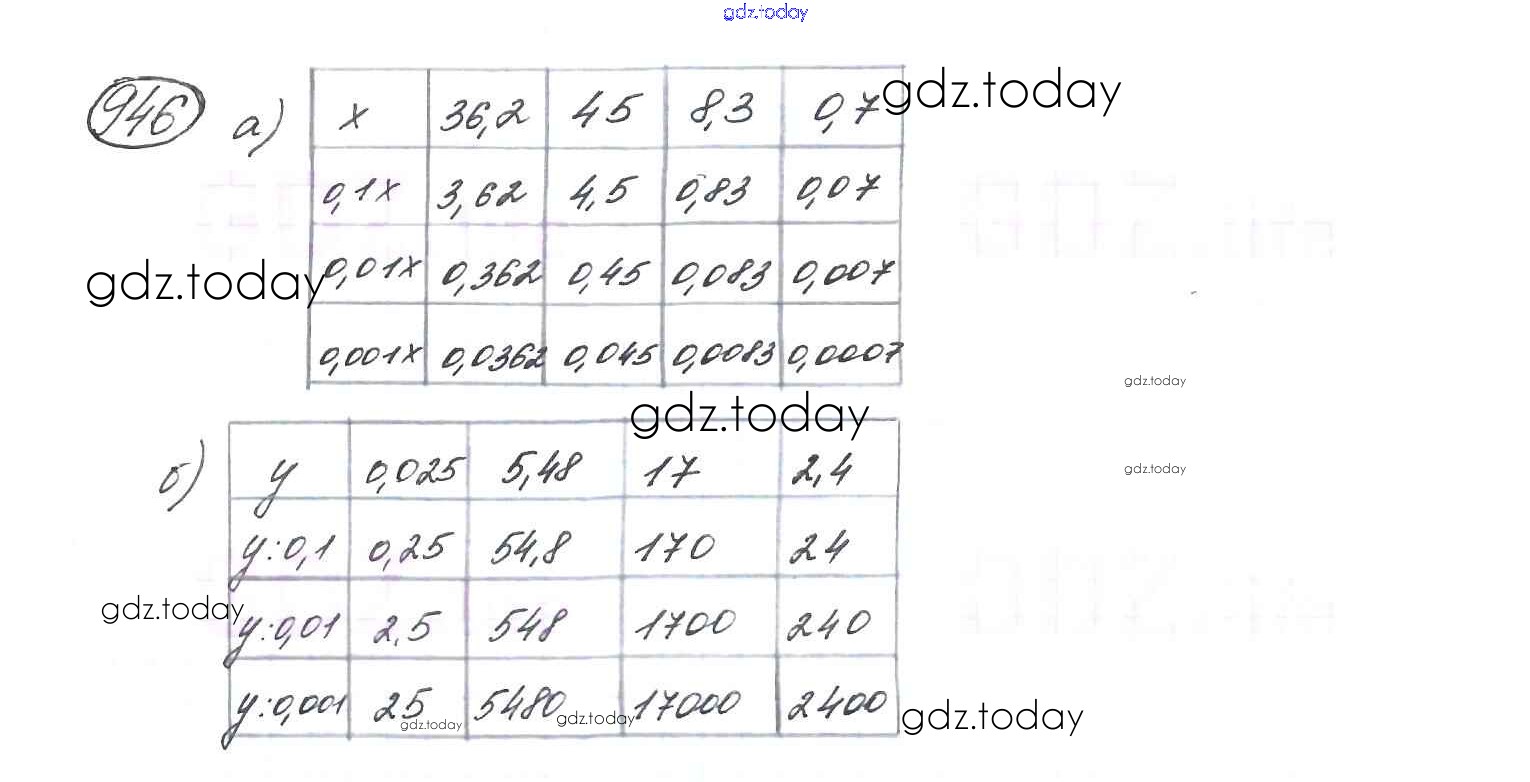 gdz.today
946 а) x 36,2 45 8,3 0,7 gdz.today
0,1x 3,62 4,5 0,83 0,07
gdz.today 0,01x 0,362 0,45 0,083 0,007
0,001x 0,0362 0,045 0,0083 0,0007
gdz.today
gdz.today
б) y 0,025 5,48 17 2,4 gdz.today
y:0,1 0,25 54,8 170 24
gdz.today y:0,01 2,5 548 1700 240
y:0,001 25 5480 17000 2400 gdz.today
gdz.today gdz.today